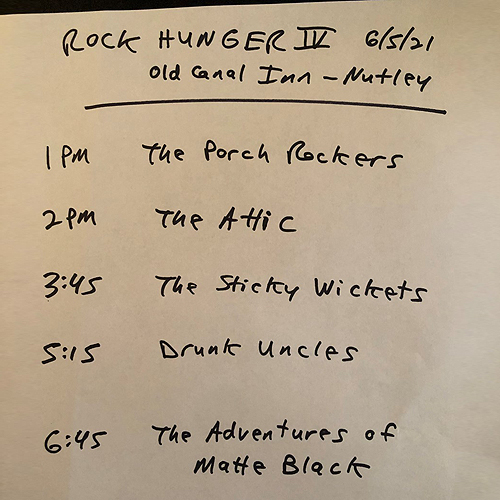 ROCK HUNGER IV 6/5/21
Old Canal Inn - Nutley
1 PM The Porch Rockers
2 PM The Attic
3:45 The Sticky Wickets
5:15 Drunk Uncles
6:45 The Adventures of
Matte Black